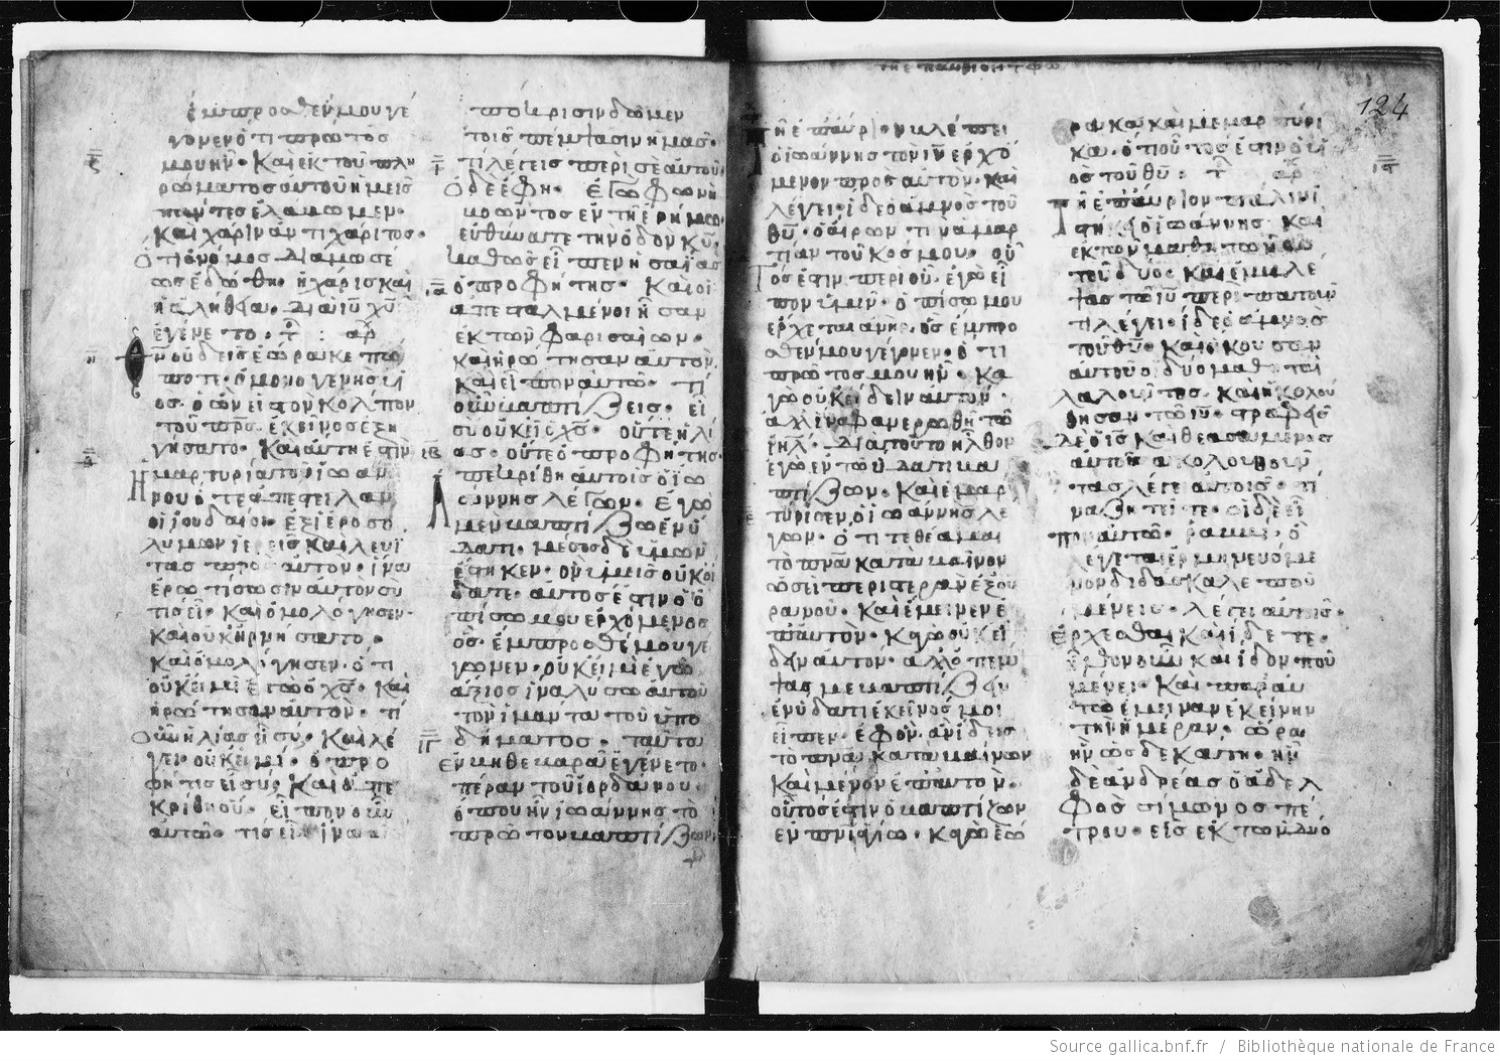 ἔμπροσθέν μου γέ
γονεν ὅτι πρῶτός
μου ἦν· Καὶ ἐκ τοῦ πλη
ρώματος αὐτοῦ ἡμεῖς
πάντες ἐλάβομεν·
Καὶ χάριν ἀντὶ χάριτος·
Ὅτι ὁ νόμος διὰ μωσέ
ως ἐδόθη· ἡ χάρις καὶ
ἡ ἀλήθεια· διὰ ἰυ χυ
ἐγένετο·
θν οὐδεὶς ἑώρακε πώ
ποτε· ὁ μονογενὴς υἱ
ὸς· ὁ ὢν εἰς τὸν κόλπον
τοῦ πρς· ἐκεῖνος ἐξη
γήσατο· Καὶ αὕτη ἐστὶν
Ἡ μαρτυρία τοῦ ἰωάν
νου ὅτε ἀπέστειλαν
οἱ ἰουδαῖοι· ἐξ ἱεροσο
λύμων ἱερεῖς καὶ λευΐ
τας πρὸς αὐτὸν· ἵνα
ἐρωτήσωσιν αὐτὸν σὺ
τίς εἶ· Καὶ ὁμολόγησεν·
καὶ οὐκ ἠρνήσατο·
Καὶ ὁμολόγησεν· ὅτι
οὐκ εἰμὶ ἐγὼ ὁ χς· Καὶ
ἠρώτησαν αὐτὸν· τί
Οὖν ἠλίας εἶ σύ· Καὶ λέ
γει· οὐκ εἰμί· ὁ προ
φήτης εἶ σύ; Καὶ ἀπε
κρίθη οὔ· εἶπον οὖν
αὐτῷ· τίς εἶ· ἵνα
ἀπόκρισιν δῶμεν
τοῖς πέμψασιν ἡμᾶς·
τί λέγεις περὶ σεαυτοῦ·
Ὁ δὲ ἔφη· ἐγὼ φωνὴ
βοῶντος ἐν τῇ ἐρήμῳ·
εὐθύνατε τὴν ὁδὸν κυ·
καθὼς εἶπεν ἡσαΐας
ὁ προφήτης· Καὶ οἱ
ἀπεσταλμένοι ἦσαν
ἐκ τῶν φαρισαίων·
καὶ ἠρώτησαν αὐτὸν·
καὶ εἶπον αὐτῷ· τί
οὖν βαπτίζεις· εἰ
σὺ οὐκ εἶ ὁ χς· οὔτε ἠλί
ας· οὔτε ὁ προφήτης·
Ἀπεκρίθη αὐτοῖς ὁ ἰω
άννης λέγων· Ἐγὼ
μὲν βαπτίζω ἐν ὕ
δατι· μέσος δὲ ὑμῶν
ἕστηκεν· ὃν ὑμεῖς οὐκ οἴ
δατε· αὐτός ἐστιν ὁ ὀ
πίσω μου ἐρχόμενος
ὃς· ἔμπροσθέν μου γέ
γονεν· οὗ οὐκ εἰμὶ ἐγὼ
ἄξιος ἵνα λύσω αὐτοῦ
τὸν ἱμάντα τοῦ ὑπο
δήματος· ταῦτα
Ἐν βηθεβαρᾶ ἐγένετο·
πέραν τοῦ ἰορδάνου·
ὅπου ἦν ἰωάννης τὸ
πρῶτον βαπτίζων·
124
Τῇ ἐπαύριον βλέπει
ὁ ἰωάννης τὸν ιν ἐρχό
μενον πρὸς αὐτὸν· καὶ
λέγει· ἴδε ὁ ἀμνὸς τοῦ
θυ· ὁ αἴρων τὴν ἁμαρ
τίαν τοῦ κόσμου· οὗ
τός ἐστιν περὶ οὗ· ἐγὼ εἶ
πον ὑμῖν· ὀπίσω μου
ἔρχεται ἀνήρ· ὃς ἔμπρο
σθέν μου γέγονεν· ὅτι
πρῶτός μου ἦν· Κα
γὼ οὐκ ᾔδειν αὐτόν·
ἀλλ' ἵνα φανερωθῇ τῷ
ιηλ· διὰ τοῦτο ἦλθον
ἐγὼ ἐν τῷ ὕδατι βα
πτίζων· Καὶ ἐμαρ
τύρησεν ὁ ἰωάννης λέ
γων· ὅτι τεθέαμαι
τὸ πνα καταβαῖνον
ὡσεὶ περιστερὰν ἐξ οὐ
ρανοῦ· Καὶ ἔμεινεν ἐ
π' αὐτόν· Καγὼ οὐκ ᾔ
δειν αὐτόν· ἀλλ' ὁ πέμ
ψας με βαπτίζειν
ἐν ὕδατι ἐκεῖνός μοι
εἶπεν· ἐφ' ὃν ἂν ἴδῃς
τὸ πνα καταβαῖνον
Καὶ μένον ἐπ' αὐτόν·
οὗτός ἐστιν ὁ βαπτίζων
ἐν πνι ἁγίῳ· Καγὼ ἑώ
ρακα καὶ μεμαρτύρη
κα· ὅτι οὗτός ἐστιν ὁ υἱ
ὸς τοῦ θυ·
Τῇ ἐπαύριον πάλιν εἱ
στήκει ὁ ἰωάννης· Καὶ
ἐκ τῶν μαθητῶν αὐ
τοῦ δύο· Καὶ ἐμβλέ
ψας τῷ ιυ περιπατοῦντι
λέγει· ἴδε ὁ ἀμνὸς
τοῦ θυ· Καὶ ἤκουσαν
αὐτοῦ οἱ δύο μαθηταὶ
λαλοῦντος· Καὶ ἠκολού
θησαν τῷ ιυ· στραφεὶς
δὲ ὁ ις καὶ θεασάμενος
αὐτοὺς ἀκολουθοῦν
τας λέγει αὐτοῖς· τί
να ζητεῖτε· οἱ δὲ εἶ
πον αὐτῷ· ῥαββί· ὃ
λέγεται ἑρμηνευόμε
νον διδάσκαλε ποῦ
μένεις· λέγει αὐτοῖς·
ἔρχεσθαι καὶ ἴδετε·
ἦλθον οὖν καὶ ἴδον ποῦ
μένει· Καὶ παρ' αὐ
τῷ ἔμειναν ἐκείνην
τὴν ἡμέραν· ὥρα
ἦν ὡς δεκάτη· ἦν
δὲ ἀνδρέας ὁ ἀδελ
φὸς σίμωνος πέ
τρου· εἷς ἐκ τῶν δύο
Source gallica.bnf.fr / Bibliothèque nationale de France